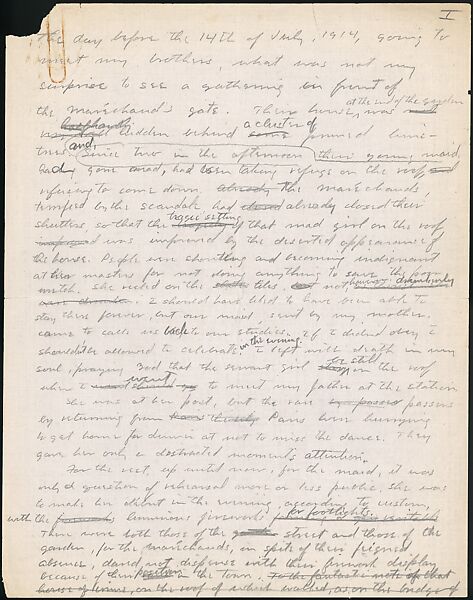 I
the day before the 14th of July, 1914, going to
meet my brothers, what was not my
surprise to see a gathering in front of
the Maréchaud's gate. Their house was
at the end of the garden
hidden behind a cluster of pruned lime-
trees and,
Since two in the afternoon their young maid,
had gone mad, had been taking refuge on the roof, and
refusing to come down. already the Maréchauds
terrified by the scandal had closed already closed their
shutters, so that the tragic setting of that mad girl on the roof
was improved by the deserted appearance of
the house. People were shouting and becoming indignant
at her masters for not doing anything to save the poor
wretch. She reeled on the tiles, but not, however drunkenly
I should have liked to have been able to
stay there forever, but our maid, sent by my mother,
came to call us back to our studies. If I didn't obey I
shouldn't be allowed to celebrate in the evening. I left with death in my
soul, praying God that the servant girl be still on the roof
when I went to meet my father at the station
She was at her post, but the rare passers
by returning from Paris were hurrying
to get home for dinner as not to miss the dance. They
gave her only a distracted moment's attention.
For the rest, up until now, for the maid, it was
only a question of rehearsal more or less public. She was
to make her debut in the evening, according to custom,
with the luminous fireworks for footlights.
There were both those of the street and those of the
garden, for the Maréchauds, in spite of their feigned
absence, dared not dispense with their firework display
because of their position in the town. To the fantastic note of that
house of crime, on the roof of which walked, as on the bridge of